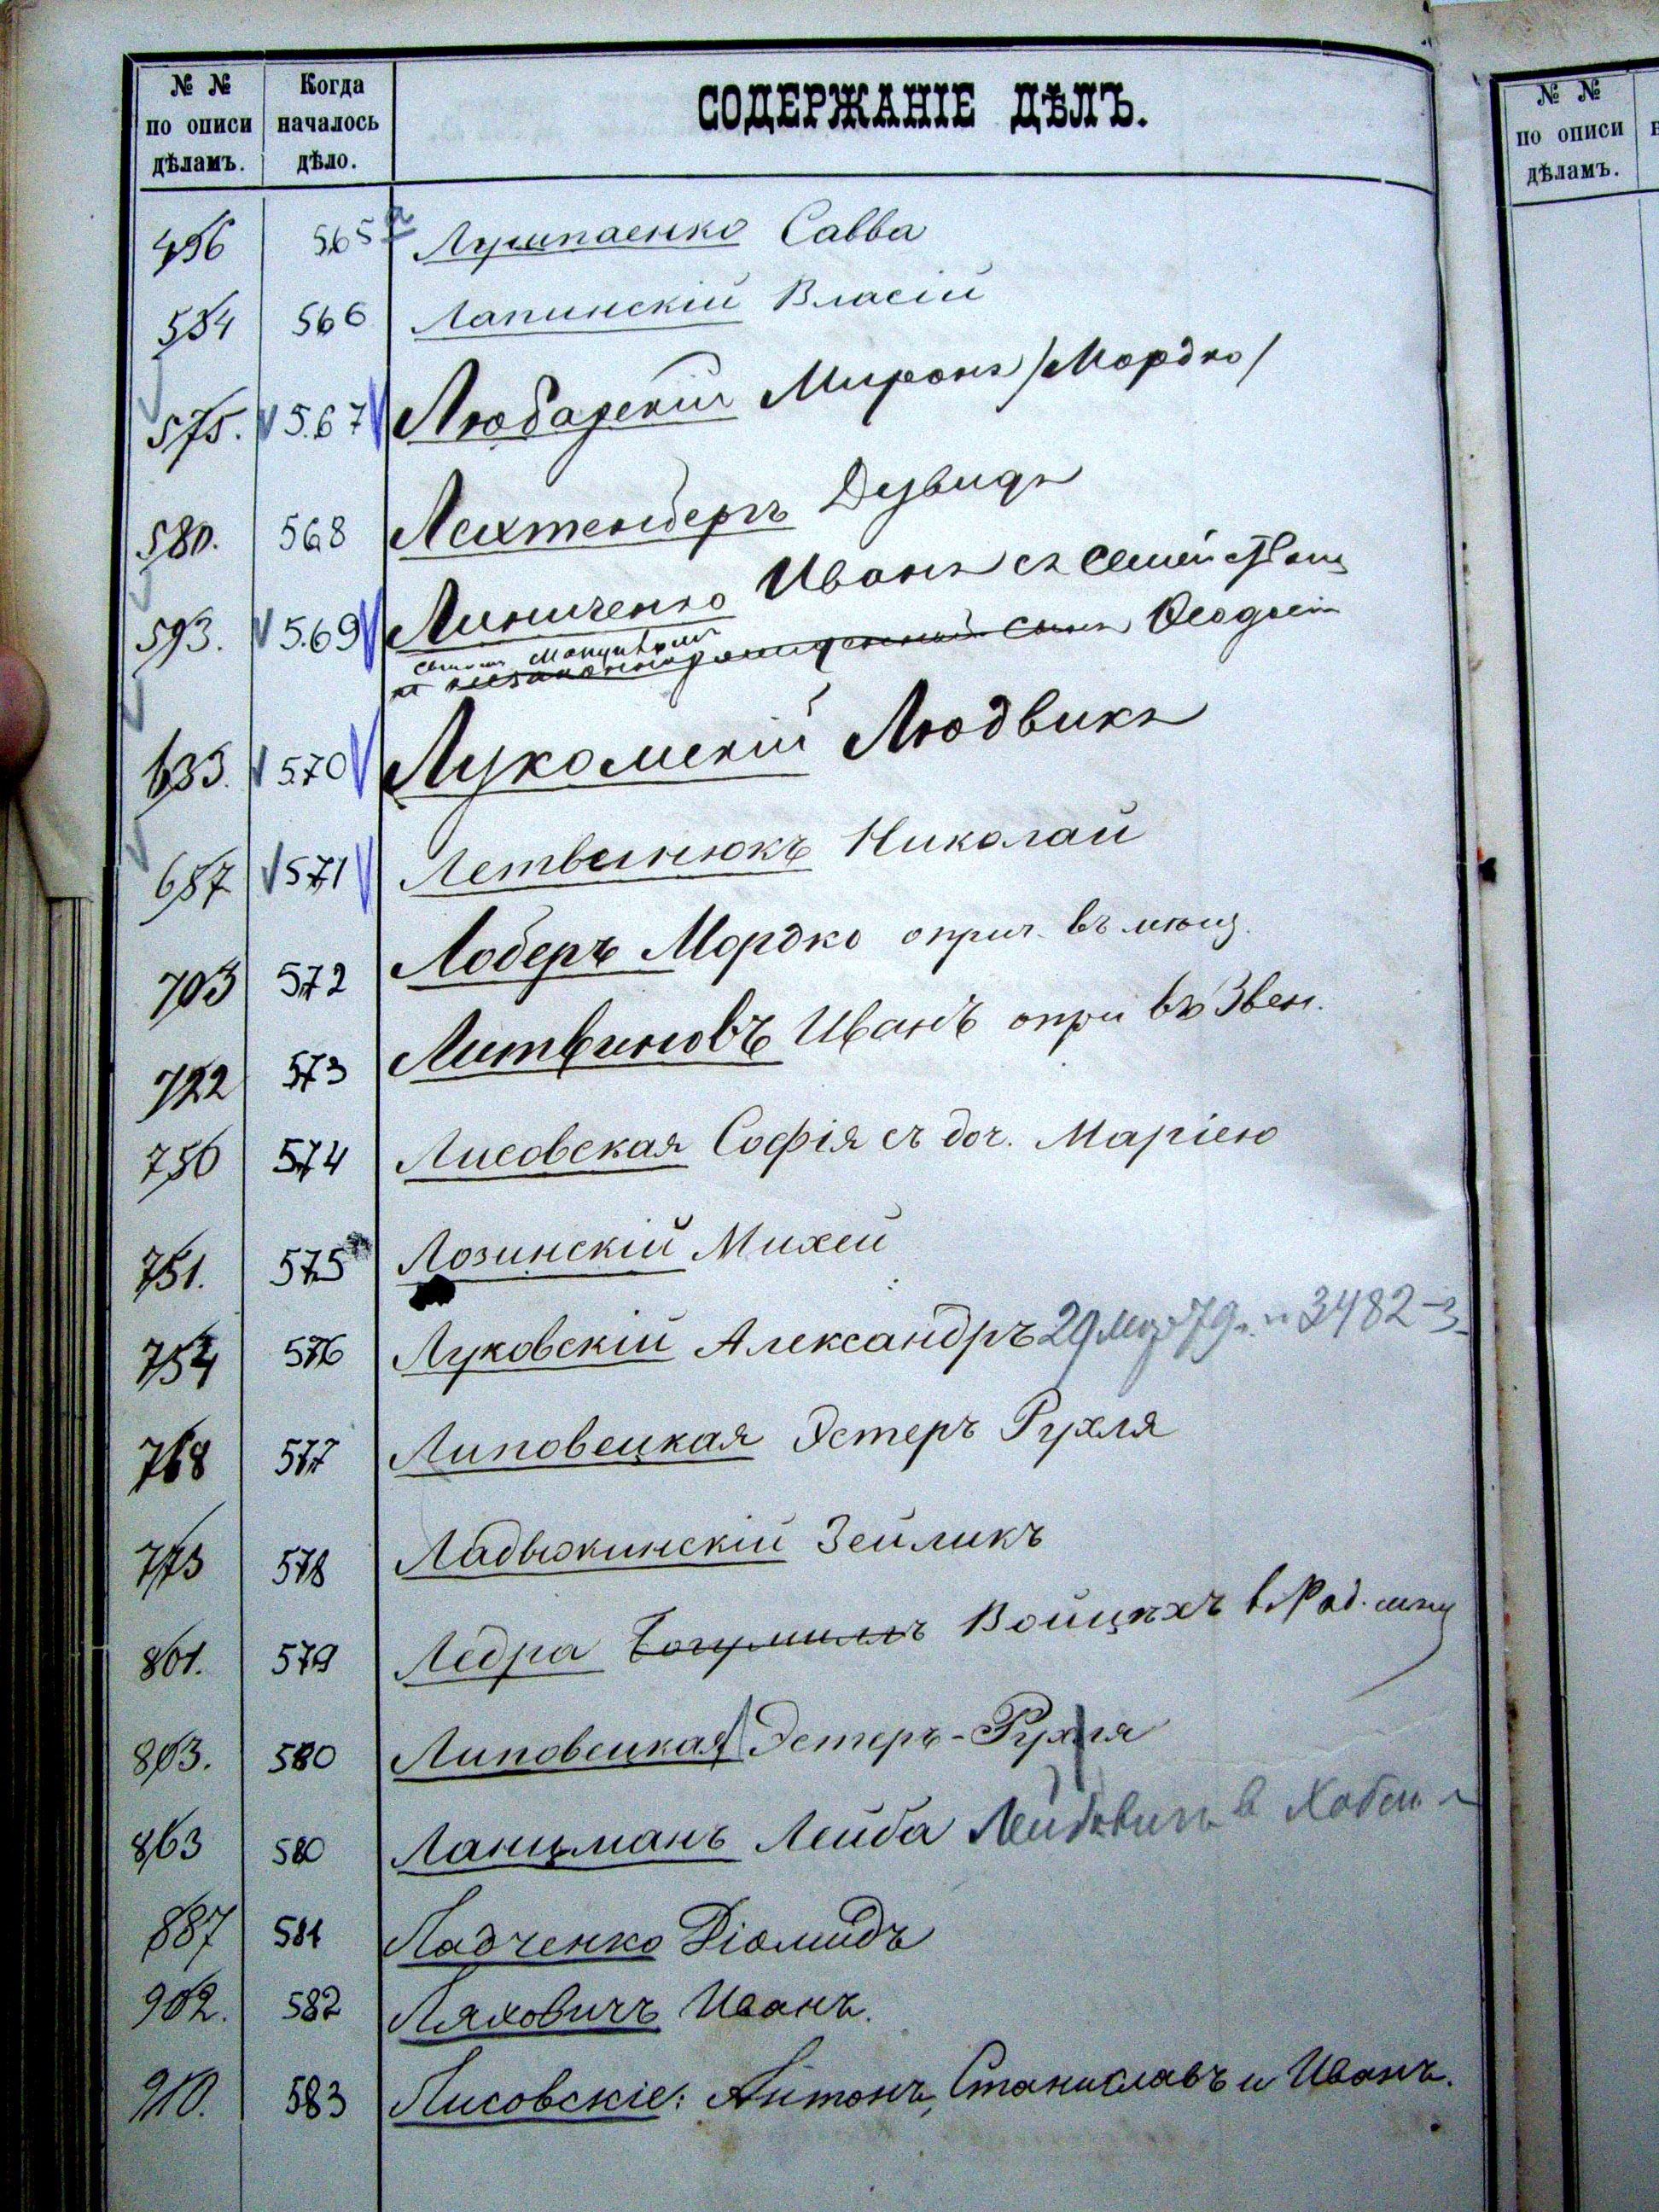 № № по описи дѣламъ. Когда началось дѣло. СОДЕРЖАНІЕ ДѢЛЪ.
496 565а Лушпаенко Савва
554 566 Лапинскій Власій
575. 567 Любарскій Миронъ /Мордко/
580. 568 Лехтенберъ Дувидъ
593. 569 Линиченко Иванъ съ семейством
сыномъ
и незаконнорожденный сынъ Ѳеодосій
633. 570 Лукомскій Людвикъ
657 571 Летвинюкъ Николай
703 572 Лоберъ Мордко оприч. въ мющ.
722 573 Литвиновъ Иванъ опри въ Звен.
750 574 Лисовская Софія съ доч. Маріею
751. 575 Лозинскій Михей
754 576 Луковскій Александръ 29 79 № 3482
768 577 Липовецкая Эстеръ Рухля
773 578 Ладыжинскій Зейликъ
801. 579 Ледра Богумилъ Войцѣхъ в Рад.
803. 580 Липовецкая Эстеръ-Рухля
863 580 Ланцманъ Лейба Лейбовичъ в
887 581 Ладченко Діомидъ
902. 582 Ляховичъ Иванъ.
910. 583 Лисовскіе: Антонъ, Станиславъ и Иванъ.
№ № по описи дѣламъ.